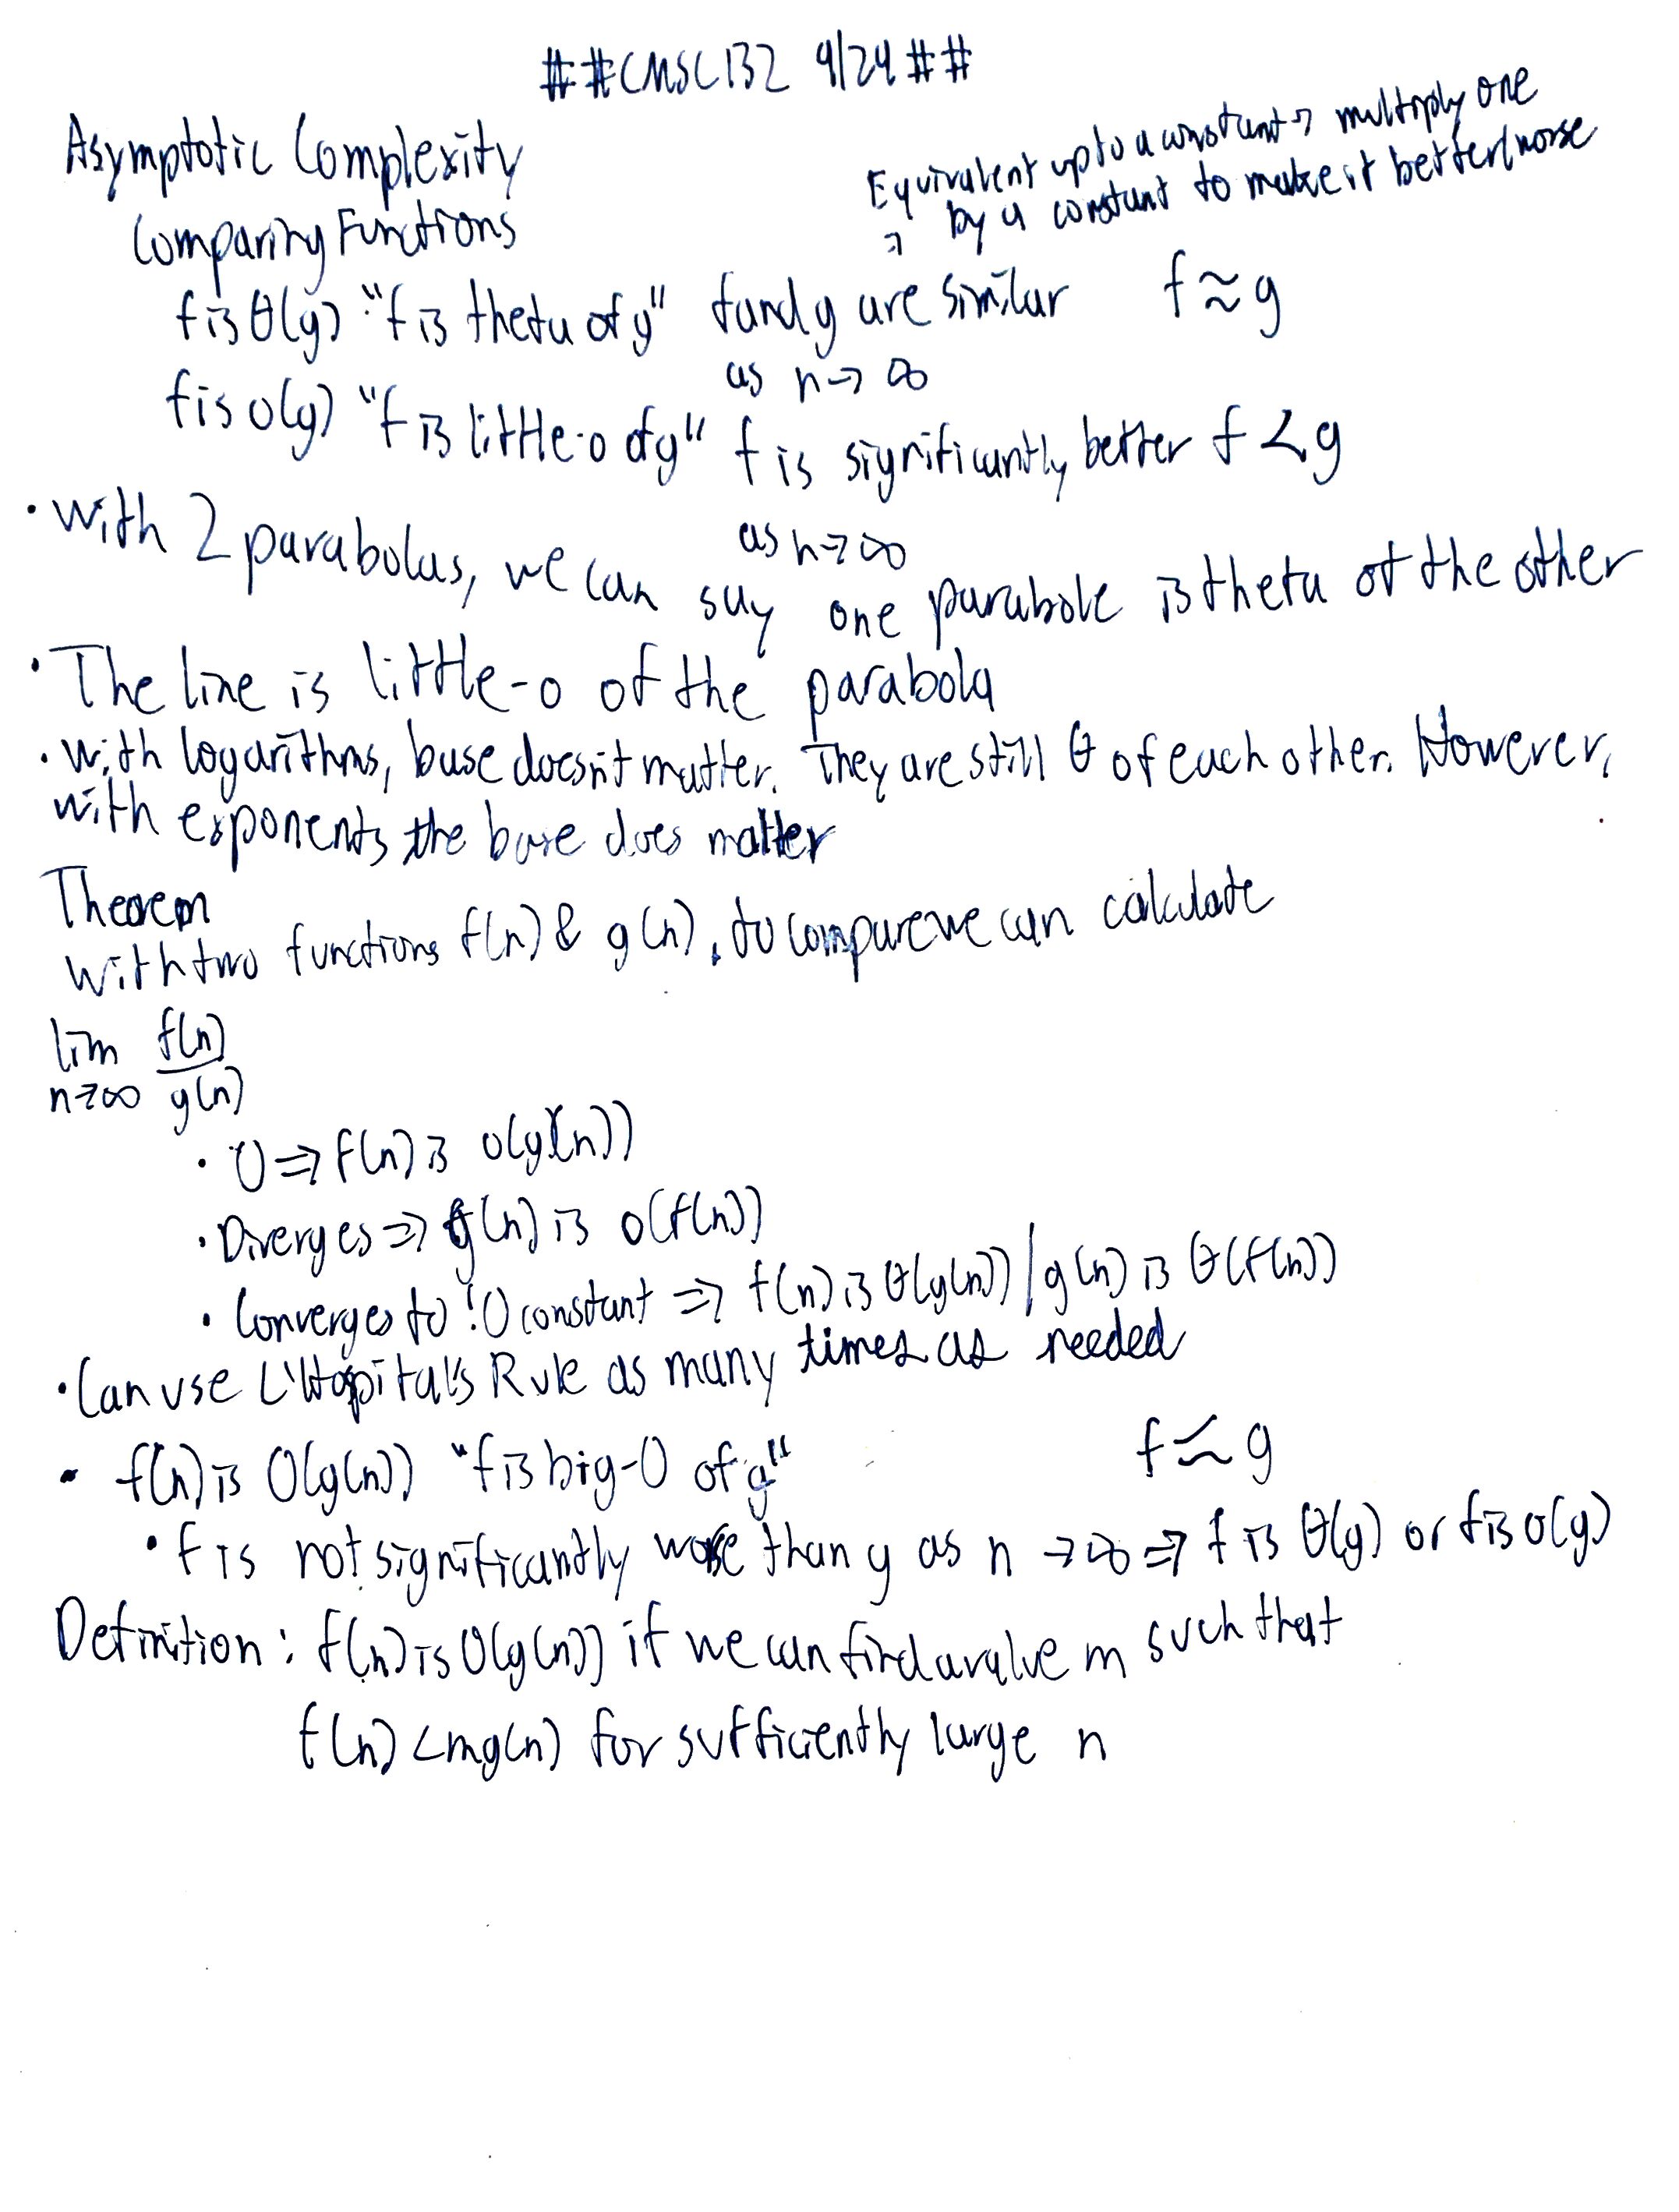 ##CMSC132 9/24##
Asymptotic Complexity
Equivalent up to a constant → multiply one
→ by a constant to make it better/worse
Comparing Functions
f is θ(g) "f is theta of g" f and g are similar f ≈ g
as n → ∞
f is o(g) "f is little-o of g" f is significantly better f < g
as n → ∞
• With 2 parabolas, we can say one parabole is theta of the other
• The line is little-o of the parabola
• With logarithms, base doesn't matter. They are still θ of each other. However,
with exponents the base does matter
Theorem
With two functions f(n) & g(n), to compare we can calculate
lim f(n)
n→∞ g(n)
• 0 ⇒ f(n) is o(g(n))
• Diverges ⇒ g(n) is o(f(n))
• Converges to !0 constant ⇒ f(n) is θ(g(n)) / g(n) is θ(f(n))
• Can use L'Hopital's Rule as many times as needed
• f(n) is O(g(n)) "f is big-O of g" f ⪅ g
• f is not significantly worse than g as n → ∞ ⇒ f is θ(g) or f is o(g)
Definition: f(n) is O(g(n)) if we can find a value m such that
f(n) < mg(n) for sufficiently large n